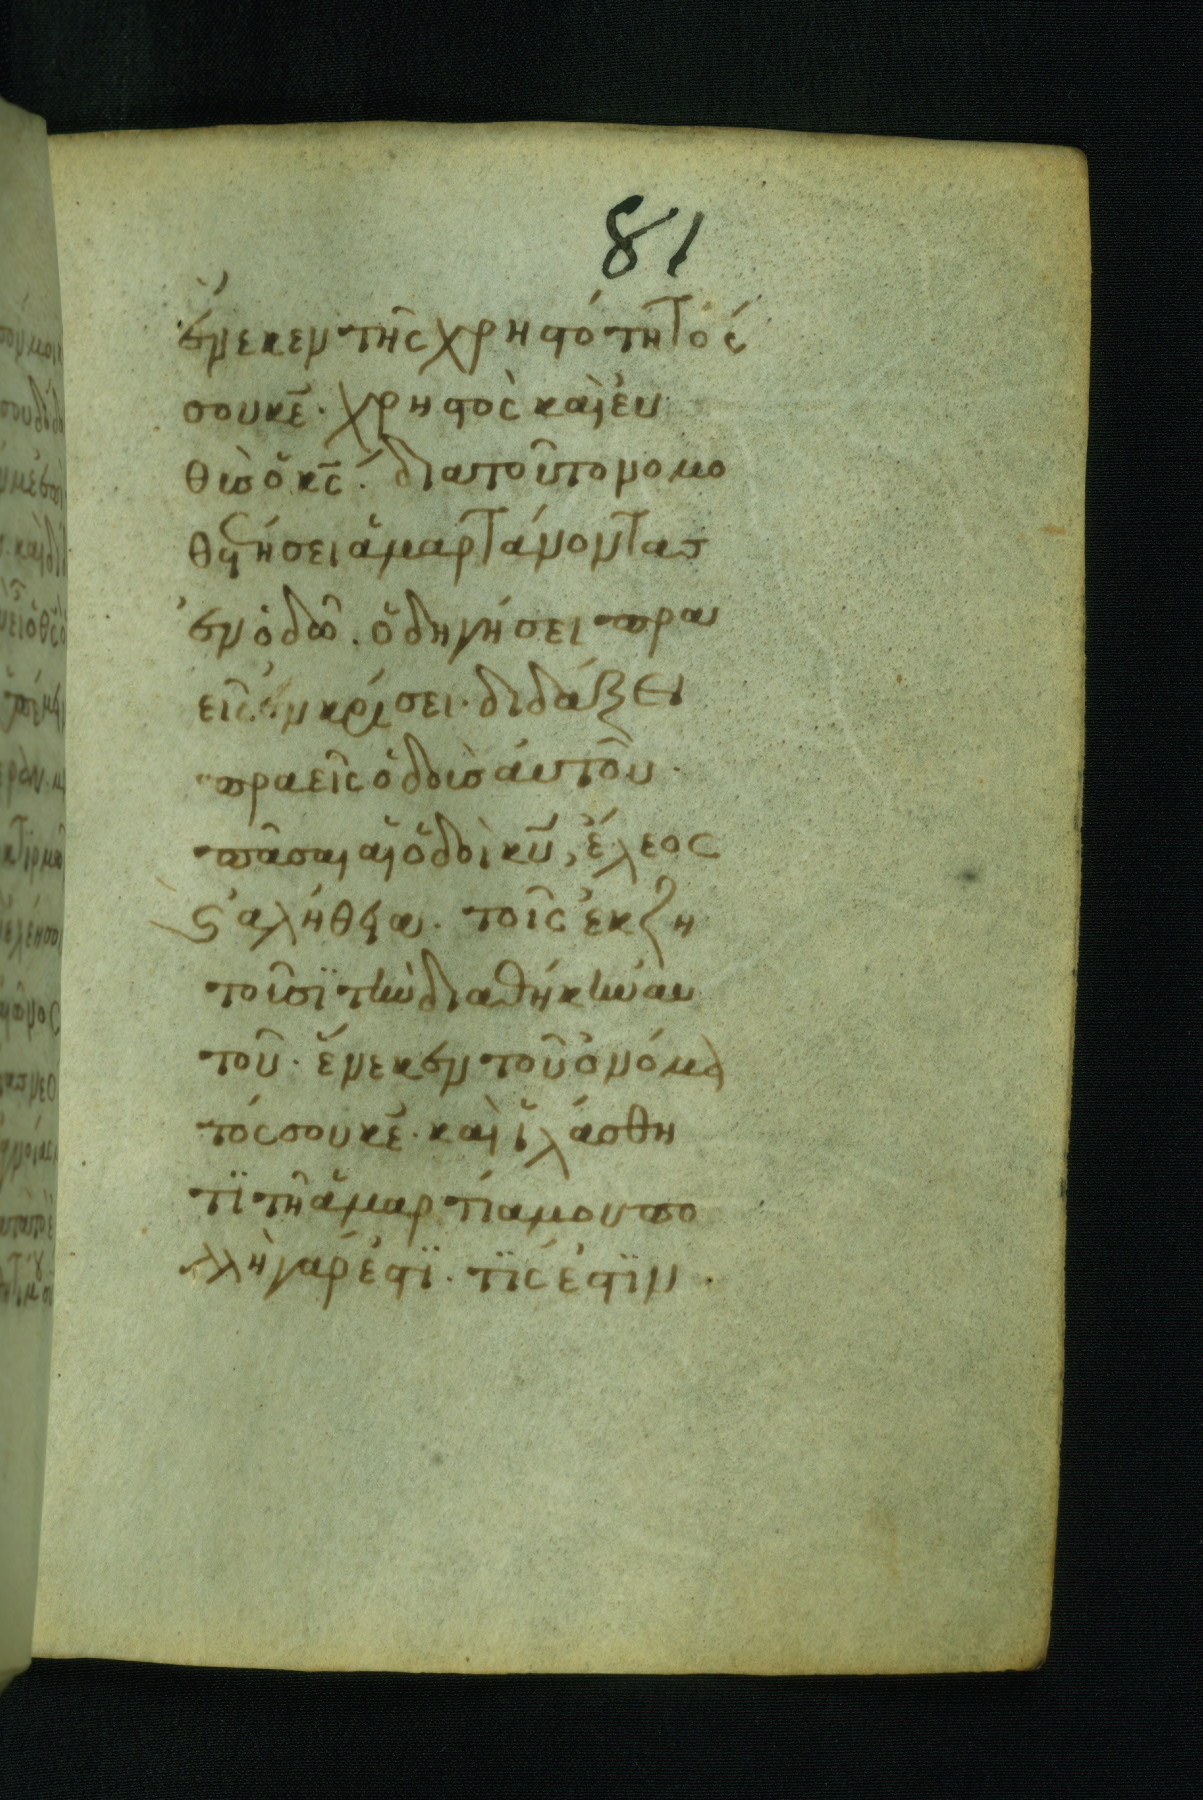 81
ἕνεκεν τῆς χρηστότητός
σου κε̄. χρηστὸς καὶ ἐυ
θὺσ ὁ κς̄. διατοῦτο νομο
θετήσει ἁμαρτάνοντασ
ἐν ὁδῶ. ὁδηγήσει πρα
εῖς ἐν κρίσει. διδάξει
πραεῖς ὁδοὺσ ἀυτοῦ.
πᾶσαι αἱ ὁδοὶ κῡ, ἔλεος
ϗ ἀλήθεια. τοῖς ἐκζη
τοῦσϊ τὴν διαθήκην ἀυ
τοῦ. ἕνεκεν τοῦ ὀνόμα
τός σου κε̄. καὶ ἱλάσθη
τϊ τῆ ἁμαρτία μου πο
λλὴ γάρ ἐστϊ. τϊς ἐστϊν.